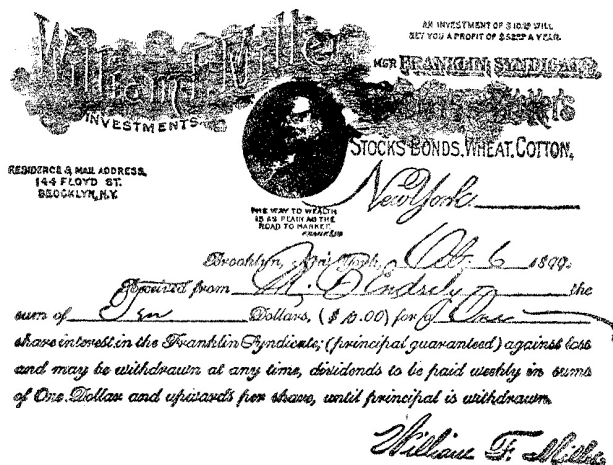 AN INVESTMENT OF $10.00 WILL
NET YOU A PROFIT OF $52.00 A YEAR.
William F. Miller
INVESTMENTS
MGR FRANKLIN SYNDICATE
STOCKS, BONDS, WHEAT, COTTON,
RESIDENCE & MAIL ADDRESS,
144 FLOYD ST.
BROOKLYN, N.Y.
New York.
THE WAY TO WEALTH
IS AS PLAIN AS THE
ROAD TO MARKET.
FRANKLIN
Brooklyn, New York, 6 1899.
Received from the
sum of Ten Dollars, ($ 10.00) for One
share interest in the Franklin Syndicate, (principal guaranteed) against loss
and may be withdrawn at any time, dividends to be paid weekly in sums
of One Dollar and upwards per share, until principal is withdrawn
William F. Miller